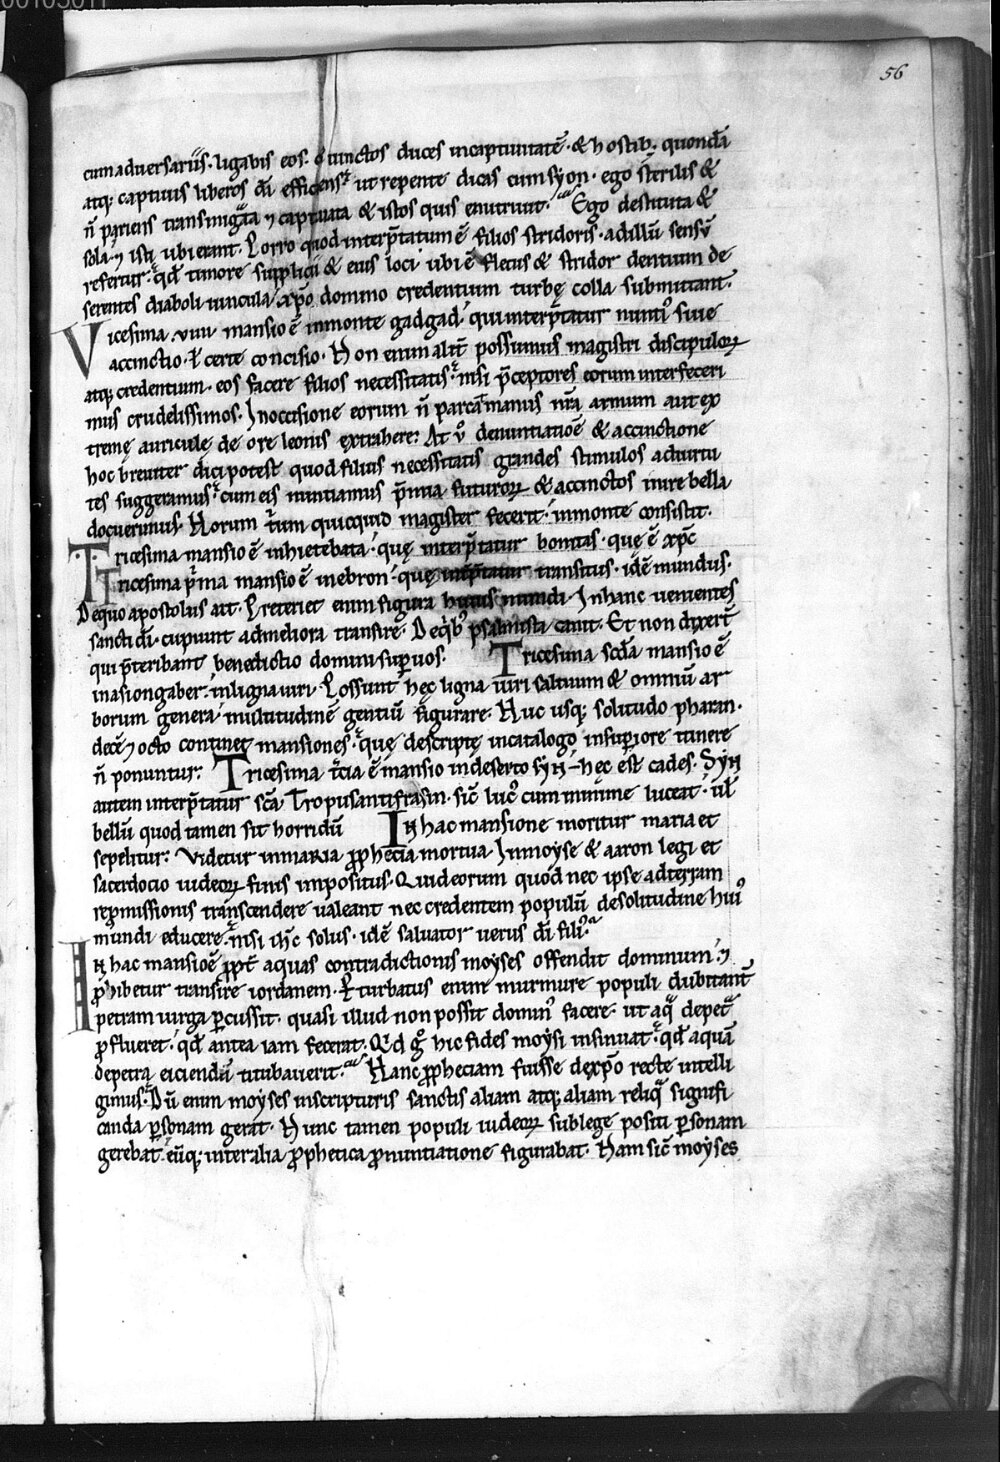 56
cum adversariis· ligabis eos· & cunctos duces incaptivitatē· & hostib; quondā
atq; captivus liberos dī efficiens· ut repente dicas cum syon· ego sterilis &
n̄ pariens transmigrata ⁊ captivata & istos quis enutrivit· Ego destituta &
sola· ⁊ isti ubi erant· Porro quod interp̄tatum ē filios stridoris· ad illū sensū
refertur· qd̄ timore supplicii & eius loci ubi ē fletus & stridor dentium de
serentes diaboli vincula· xp̄o domino credentium turbę colla submittant·
Vicesima viiii mansio ē inmonte gadgad· qui interp̄tatur nuntiꝰ sive
accinctio· ł certe concisio· Non enim alit̄ possumus magistri discipuloꝝ
atq; credentium· eos facere filios necessitatis· nisi p̄ceptores eorum interfeceri
mus crudelissimos· In occisione eorum n̄ parcat manus nr̄a armum aut ex
tremę auriculę de ore leonis extrahere· At v̊ denuntiatioē & accinctione
hoc breviter dici potest quod filiis necessitatis grandes stimulos ad virtu
tes suggeramus· cum eis nuntiamus p̄mia futuroꝝ & accinctos inire bella
docuerimus· Horum t̄rium quicquid magister fecerit· inmonte consistit·
Tricesima mansio ē inhietebata· quę interp̄tatur bonitas· quę ē xp̄c
Tricesima p̄ma mansio ē inebron· quę interp̄tatur transitus· idē mundus·
De quo apostolus ait· Preteriet enim figura huius mundi· In hanc venientes
sancti dī· cupiunt ad meliora transire· De qͥbꝰ psalmista canit· Et non dixer̄t
qui p̄teribant benedictio domini super vos· Tricesima sc̄da mansio ē
inasiongaber· inligna viri· Possunt hęc ligna viri saltuum & omniū ar
borum genera· multitudinē gentiū figurare· Huc usq; solitudo pharan·
decē ⁊ octo continet mansiones· quę descriptę incatalogo insuperiore itinere
n̄ ponuntur· Tricesima t̄cia ē mansio indeserto syn hec est cades· Syn
autem interp̄tatur sc̄a· Tropus antifrasin· sic̄ lucꝰ cum minime luceat· ut
bellū quod tamen sit horridū In hac mansione moritur maria et
sepelitur· Videtur in maria prophecia mortua· In moyse & aaron legi et
sacerdocio iudeoꝝ finis impositus· Quideorum quod nec ipse ad terram
repmissionis transcendere valeant nec credentem populū desolitudine huiꝰ
mundi educere· nisi ih̄c solus· idē salvator verus dī filiꝰ
In hac mansioē ppt̄ aquas contradictionis moyses offendit dominum· ⁊
phibetur transire iordanem· Perturbatus enim murmure populi dubitant̄
petram virga percussit· quasi illud non possit dominꝰ facere· ut aqͣ depetͣ
pflueret· qd̄ antea iam fecerat· Qd̄ g̊ hic fides moysi insinuat· qd̄ aquā
depetra eiciendū titubaverit· Hanc ppheciam fuisse dexp̄o recte intelli
gimus· Dū enim moyses inscripturis sanctis aliam atq; aliam reliqͣ signifi
canda personam gerat· Hunc tamen populi iudeoꝝ sublege positi personam
gerebat· eūq; inter alia pphetica pnuntiatione figurabat· Nam sic̄ moyses